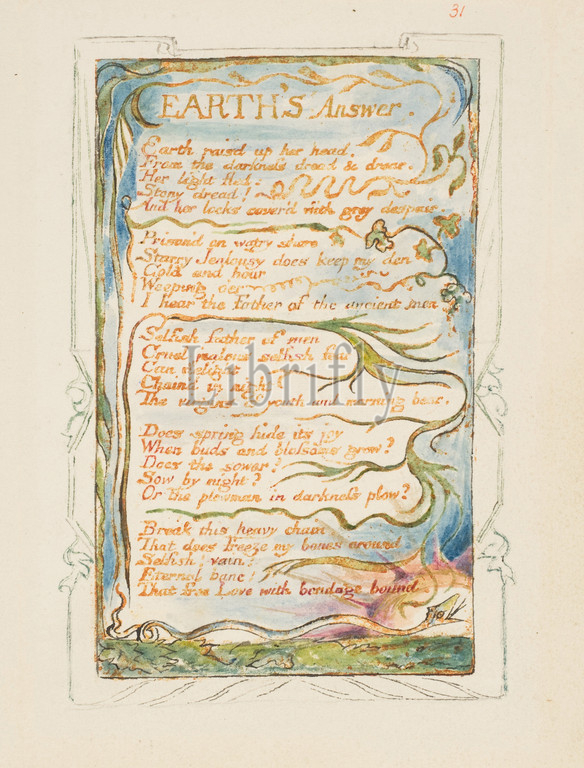 31
EARTH'S Answer.
Earth raisd up her head,
From the darkness dread & drear.
Her light fled:
Stony dread!
And her locks cover'd with grey despair.
Prisond on watry shore
Starry Jealousy does keep my den
Cold and hoar
Weeping oer
I hear the Father of the ancient men
Selfish father of men
Cruel jealous selfish fear
Can delight
Chaind in night
The virgins of youth and morning bear.
Does spring hide its joy
When buds and blossoms grow?
Does the sower?
Sow by night?
Or the plowman in darkness plow?
Break this heavy chain
That does freeze my bones around
Selfish! vain!
Eternal bane!
That free Love with bondage bound
Librifty